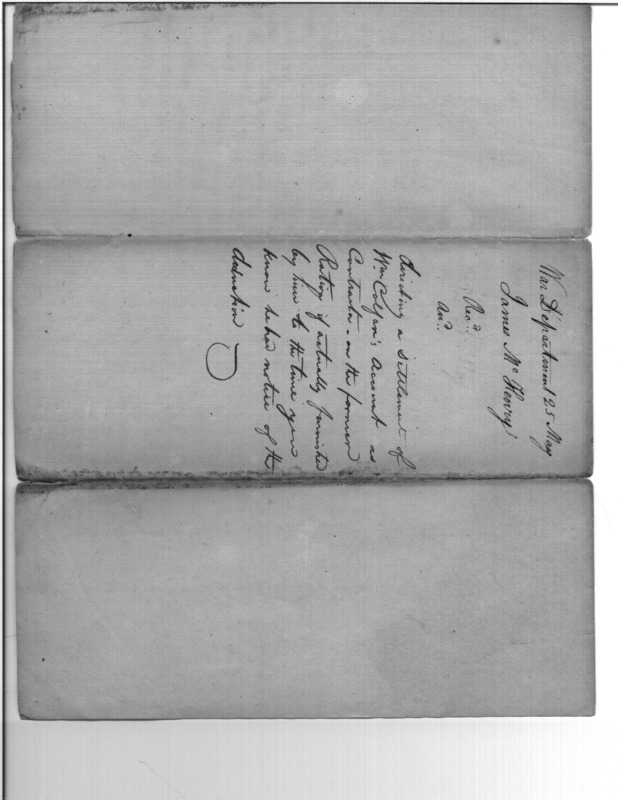 War Department 25 May
James McHenry
Recd.
And.
directing a Settlement of
Wm Colfax's Account as
Contractor on the former
Rating if actually furnished
by him to the time you
know he had notice of the
deduction